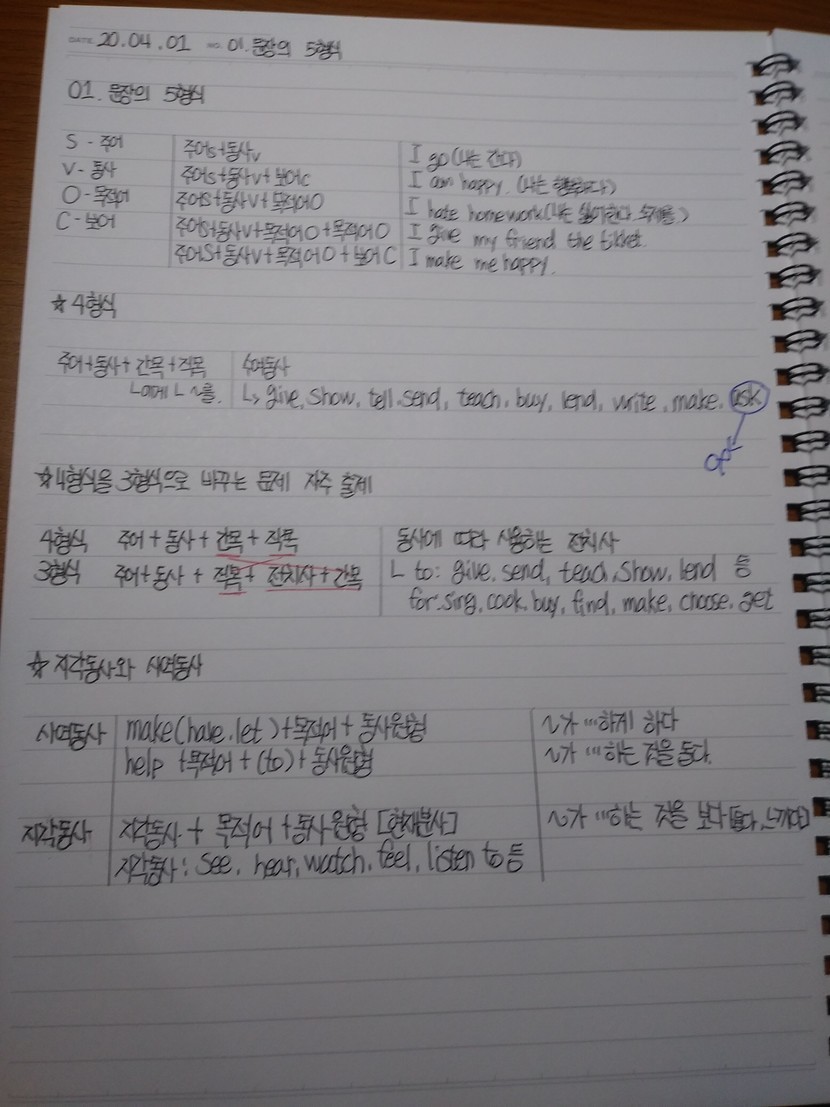 DATE 20.04.01 NO. 01. 문장의 5형식
01. 문장의 5형식
S - 주어 주어S+동사V I go (나는 간다)
V - 동사 주어S+동사V+보어C I am happy. (나는 행복하다)
O - 목적어 주어S+동사V+목적어O I hate homework (나는 싫어한다. 숙제를)
C - 보어 주어S+동사V+목적어O+목적어O I give my friend the ticket.
주어S+동사V+목적어O+보어C I make me happy.
☆4형식
주어+동사+간목+직목 수여동사
ㄴ에게 ㄴ ~를. ㄴ> give, show, tell, send, teach, buy, lend, write, make, ask
of
☆4형식을 3형식으로 바꾸는 문제 자주 출제
4형식 주어+동사+간목+직목 동사에 따라 사용하는 전치사
3형식 주어+동사+직목+전치사+간목 ㄴ to: give, send, teach, show, lend 등
for: sing, cook, buy, find, make, choose, get
☆지각동사와 사역동사
사역동사 make(have, let)+목적어+동사원형 ~가 …하게 하다
help +목적어+(to)+동사원형 ~가 …하는 것을 돕다.
지각동사 지각동사+목적어+동사원형 [현재분사] ~가 …하는 것을 보다[듣다, 느끼다]
지각동사: see, hear, watch, feel, listen to 등